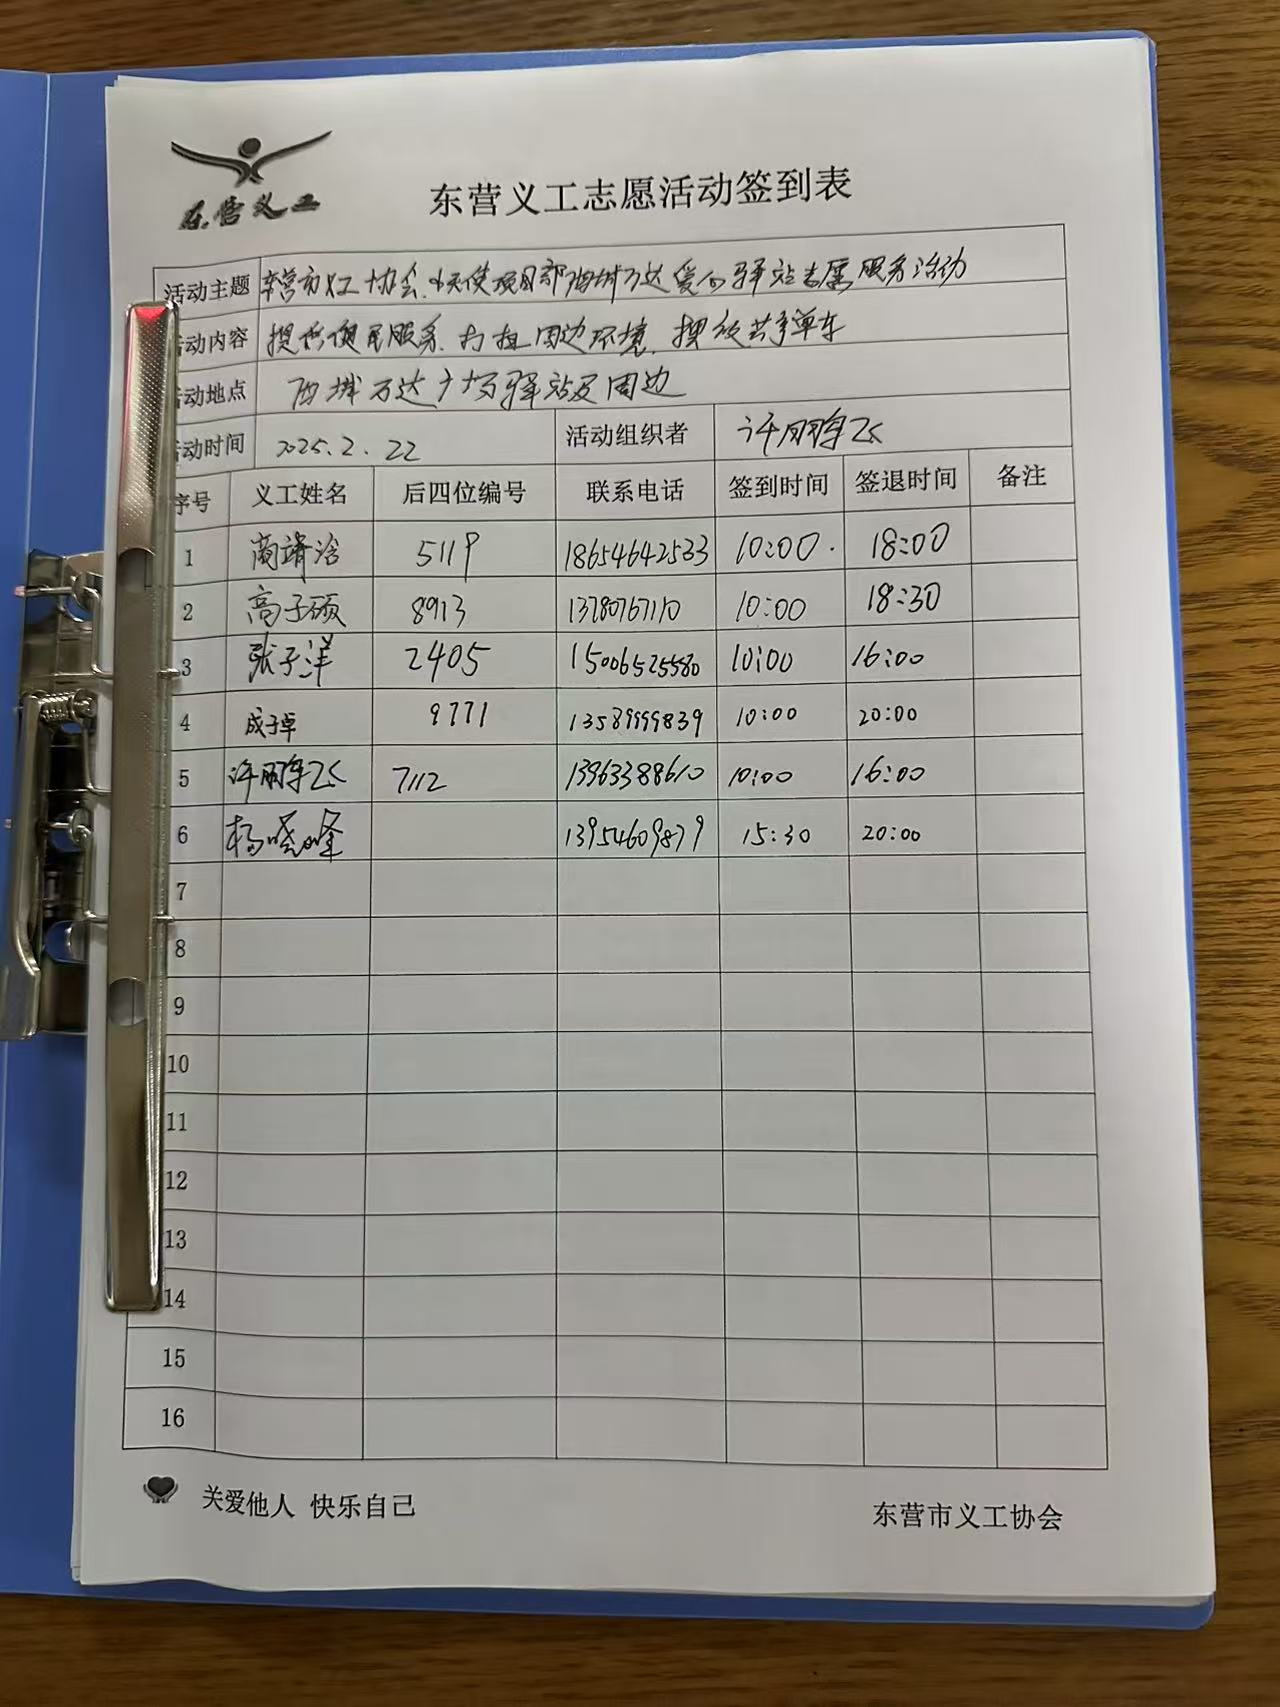 东营义工
东营义工志愿活动签到表
活动主题 东营市义工协会小天使项目部西城万达爱心驿站志愿服务活动
活动内容 提供便民服务、打扫周边环境、摆放共享单车
活动地点 西城万达广场驿站及周边
活动时间 2025.2.22 活动组织者 许鹏飞
序号 义工姓名 后四位编号 联系电话 签到时间 签退时间 备注
1 商靖涵 5119 18654642533 10:00 18:00
2 高子硕 8913 13780767110 10:00 18:30
3 张子洋 2405 15006525580 10:00 16:00
4 成子卓 9771 13589999839 10:00 20:00
5 许鹏飞 7112 13963388610 10:00 16:00
6 杨晓峰 13954609879 15:30 20:00
7
8
9
10
11
12
13
14
15
16
关爱他人 快乐自己 东营市义工协会